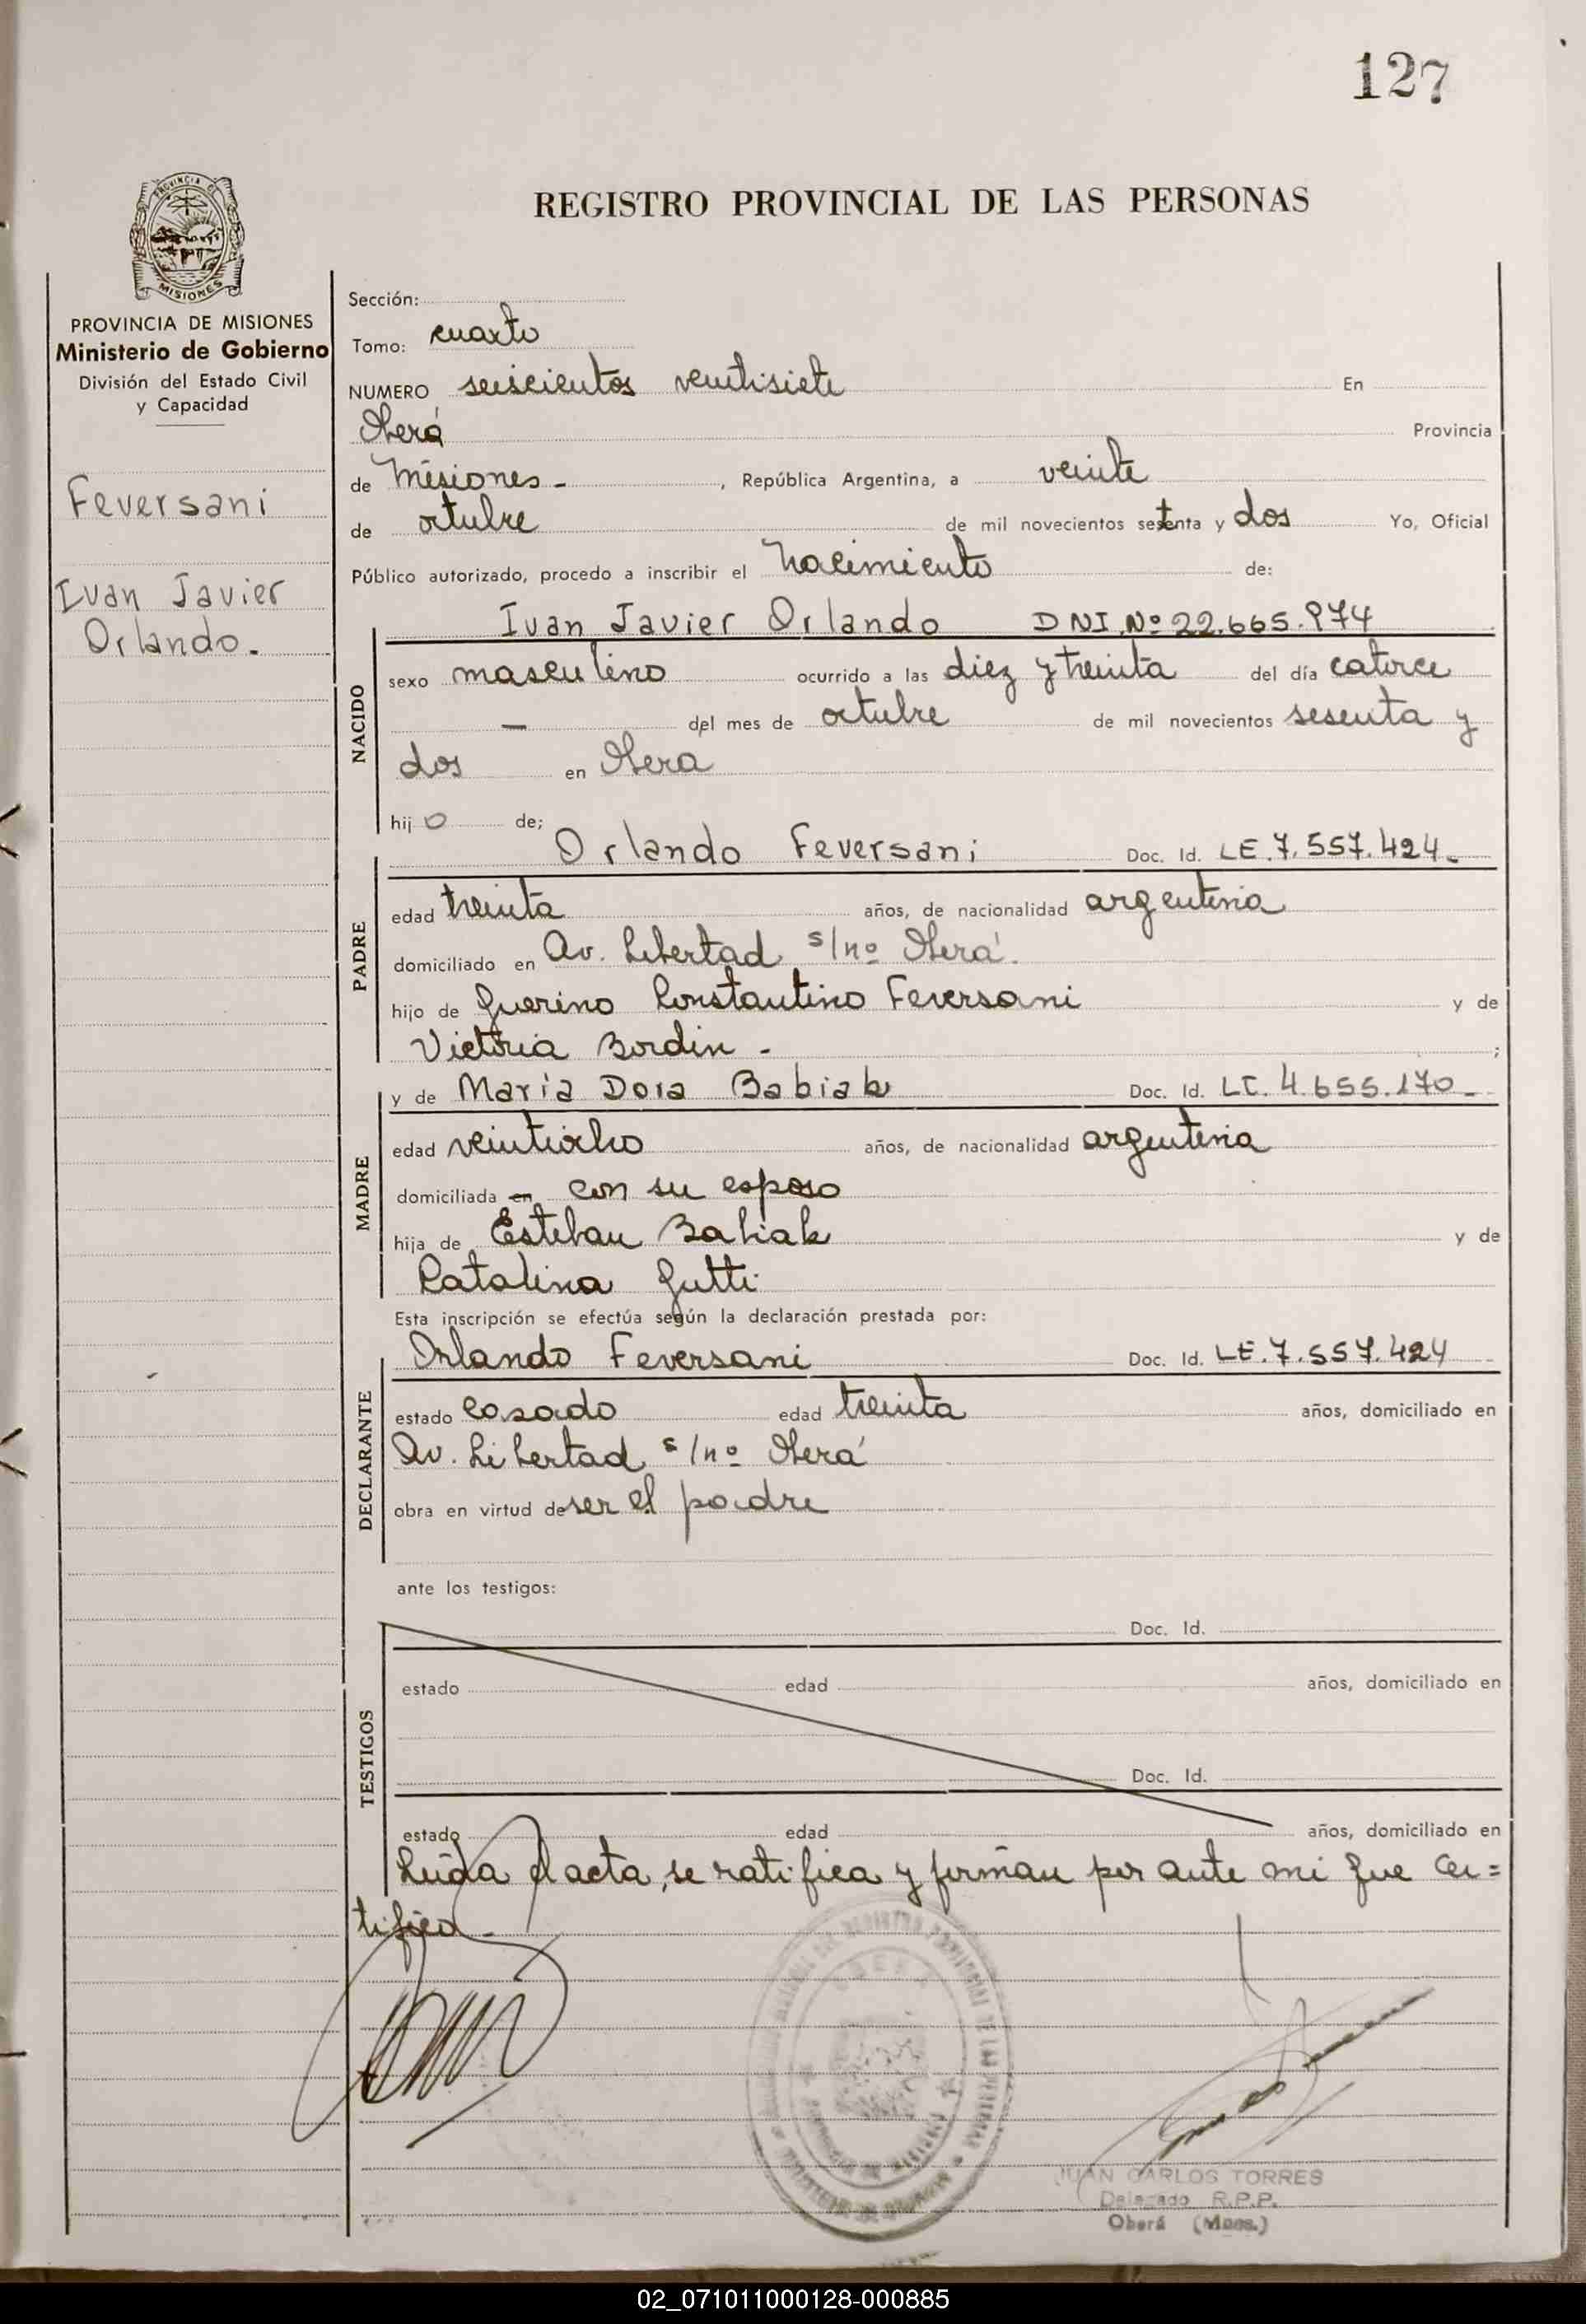 127
REGISTRO PROVINCIAL DE LAS PERSONAS
PROVINCIA DE
MISIONES
PROVINCIA DE MISIONES
Ministerio de Gobierno
División del Estado Civil
y Capacidad
Feversani
Ivan Javier
Orlando.
Sección:
Tomo: cuarto
NUMERO seiscientos veintisiete En
Oberá Provincia
de Misiones - , República Argentina, a veinte
de octubre de mil novecientos setenta y dos Yo, Oficial
Público autorizado, procedo a inscribir el nacimiento de:
Ivan Javier Orlando DNI Nº 22.665.974
NACIDO
sexo masculino ocurrido a las diez y treinta del día catorce
— del mes de octubre de mil novecientos sesenta y
dos en Obera
hijo de;
PADRE
Orlando Feversani Doc. Id. LE.7.557.424.-
edad treinta años, de nacionalidad argentina
domiciliado en Av. Libertad s/nº Oberá.
hijo de Guerino Constantino Feversani y de
Victoria Bordin - ;
MADRE
y de María Dora Babiak Doc. Id. LC. 4.655.170_
edad veintiocho años, de nacionalidad argentina
domiciliada en con su esposo
hija de Esteban Babiak y de
Catalina Gutti
Esta inscripción se efectúa según la declaración prestada por:
DECLARANTE
Orlando Feversani Doc. Id. LE.7.557.424
estado casado edad treinta años, domiciliado en
Av. Libertad s/nº Oberá
obra en virtud de ser el padre
ante los testigos:
TESTIGOS
Doc. Id.
estado edad años, domiciliado en
Doc. Id.
estado edad años, domiciliado en
Leída el acta, se ratifica y firman por ante mi que cer=
tifico -
JUAN CARLOS TORRES
Delegado R.P.P.
Oberá (Mnes.)
02_071011000128-000885